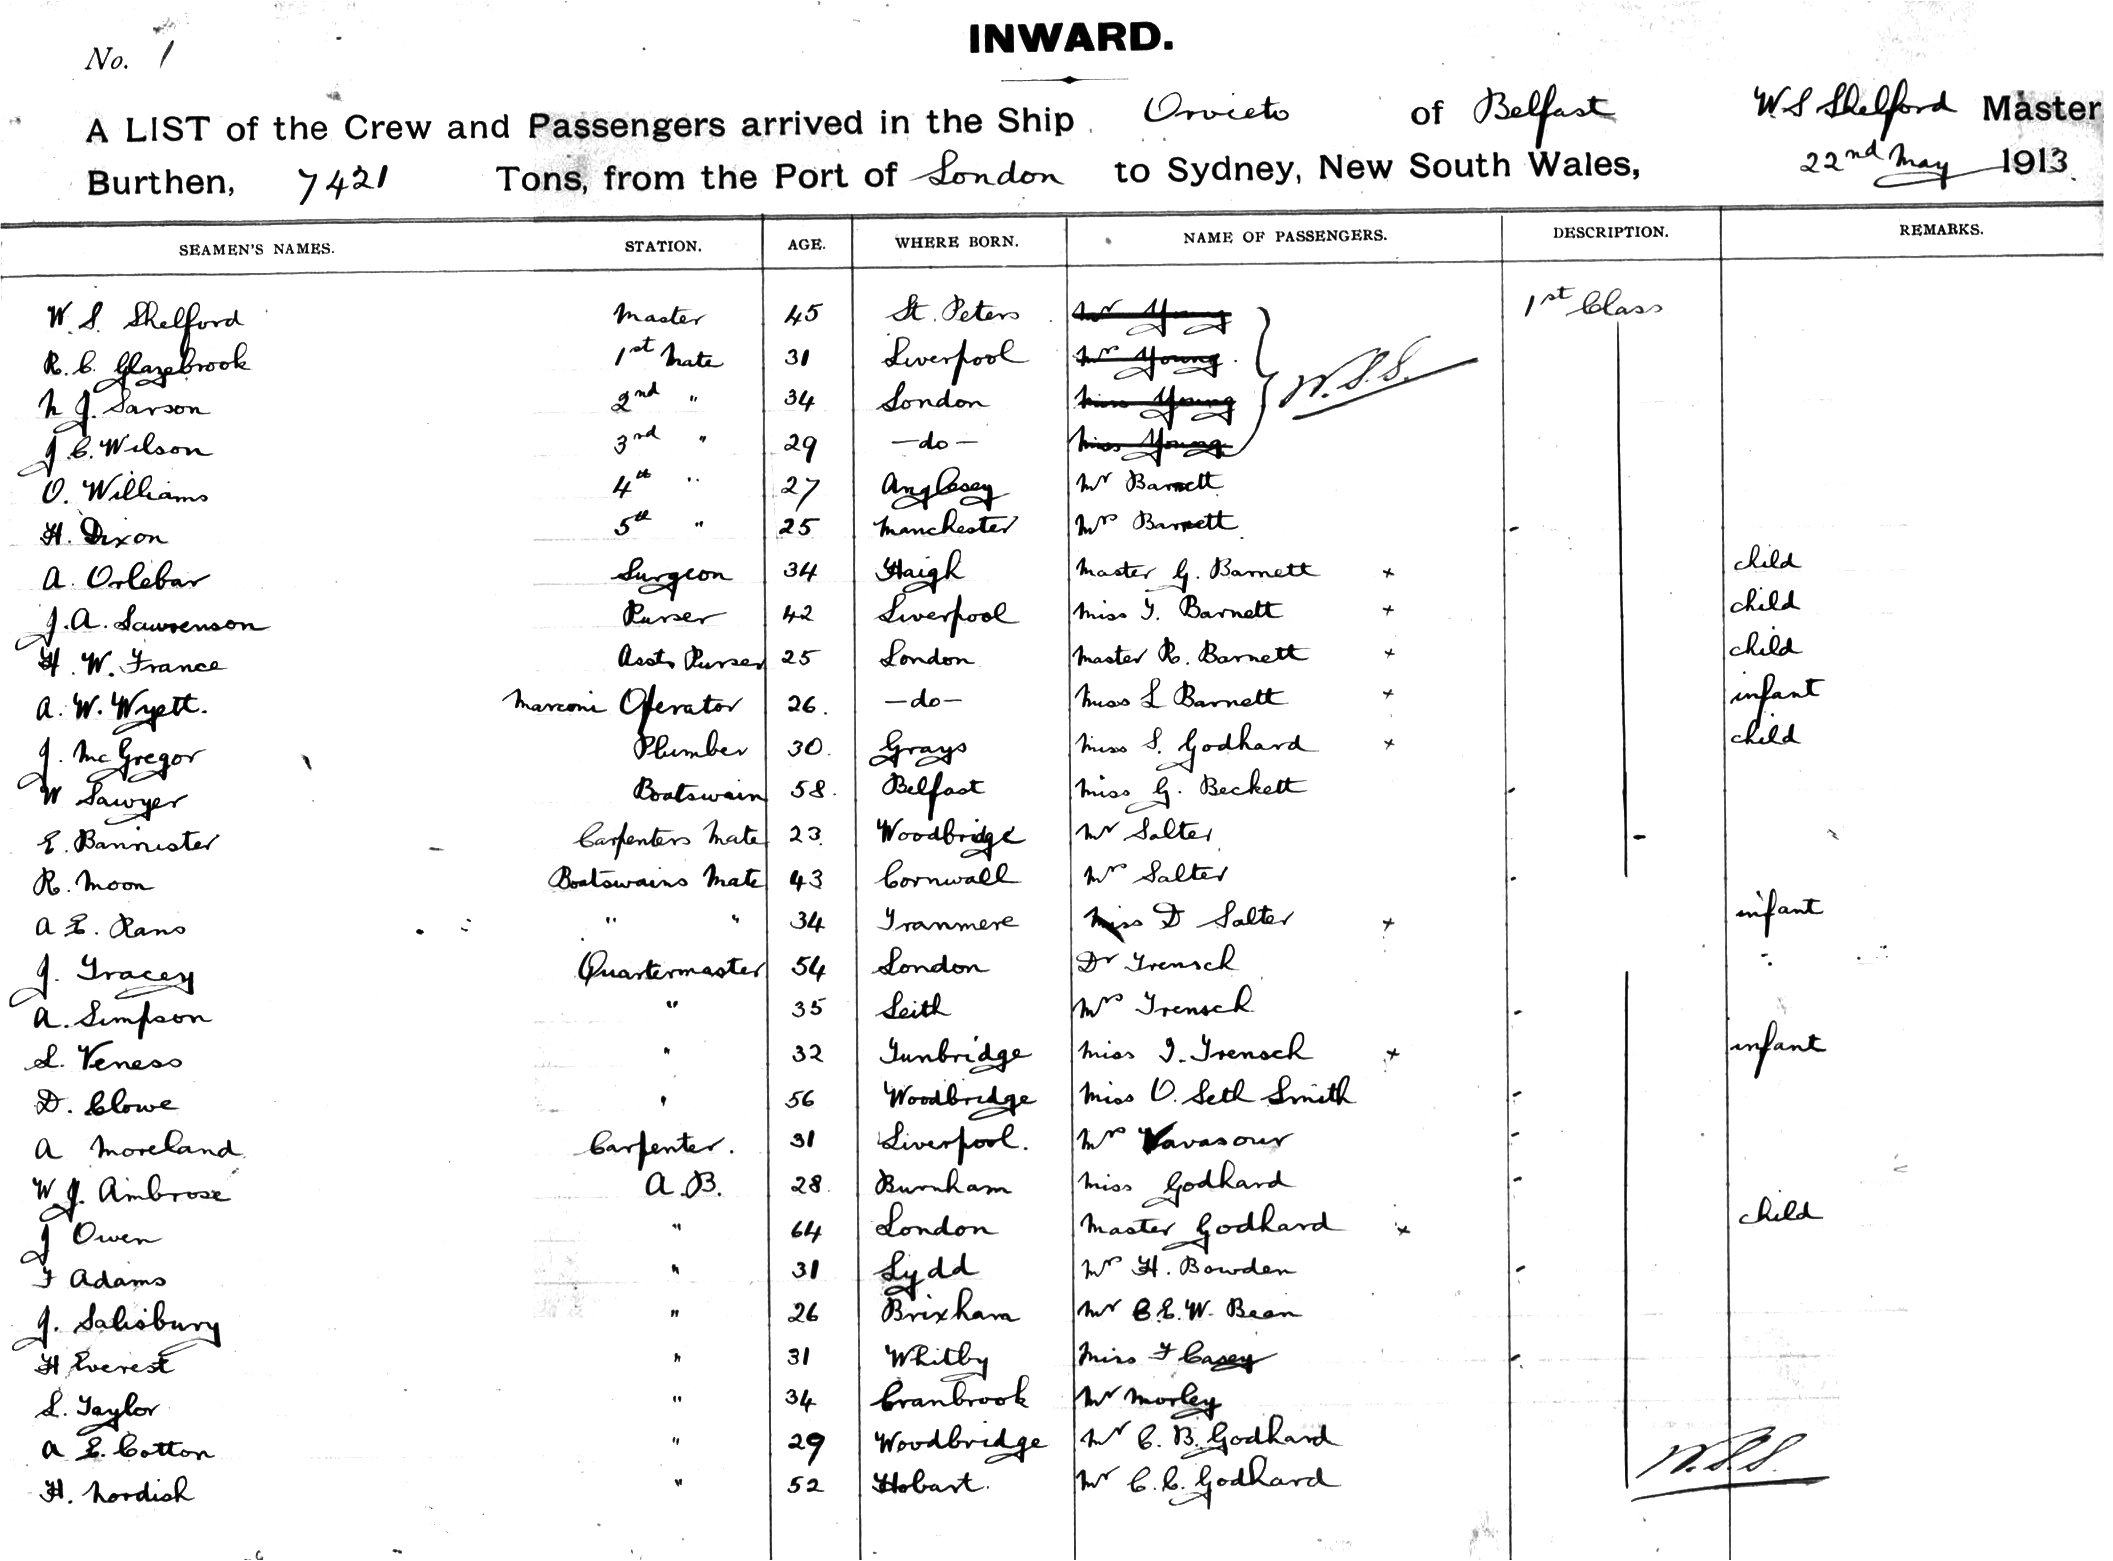 No. 1
INWARD.
A LIST of the Crew and Passengers arrived in the Ship Orvieto of Belfast W S Shelford Master
Burthen, 7421 Tons, from the Port of London to Sydney, New South Wales, 22nd May 1913.
SEAMEN'S NAMES. STATION. AGE. WHERE BORN. NAME OF PASSENGERS. DESCRIPTION. REMARKS.
W. S. Shelford Master 45 St. Peters Mr Young 1st Class
R. C. Glazebrook 1st Mate 31 Liverpool Mrs Young W.S.S.
N J. Sarson 2nd " 34 London Miss Young
J. C. Wilson 3rd " 29 —do— Miss Young
O. Williams 4th " 27 Anglesey Mr Barnett
H. Dixon 5th " 25 Manchester Mrs Barnett
A. Orlebar Surgeon 34 Haigh Master G. Barnett x child
J. A. Lawrenson Purser 42 Liverpool Miss Y. Barnett x child
H. W. France Asst. Purser 25 London Master R. Barnett x child
A. W. Wyett. Marconi Operator 26. —do— Miss L Barnett x infant
J. McGregor Plumber 30. Grays Miss S. Godhard x child
W Sawyer Boatswain 58. Belfast Miss G. Beckett
E. Bannister Carpenters Mate 23. Woodbridge Mr Salter
R. Moon Boatswains Mate 43 Cornwall Mrs Salter
A E. Rans " " 34 Tranmere Miss D Salter x infant
J. Tracey Quartermaster 54 London Dr Trensch
A. Simpson " 35 Leith Mrs Trensch
L. Veness " 32 Tunbridge Miss I. Trensch x infant
D. Clowe " 56 Woodbridge Miss O. Seth Smith
A Moreland Carpenter. 31 Liverpool. Mrs Vavasour
W J. Ambrose A.B. 28 Burnham Miss Godhard
J Owen " 64 London Master Godhard x child
F Adams " 31 Lydd Mrs H. Bowden
J. Salisbury " 26 Brixham Mr C.E.W. Bean
H Everest " 31 Whitby Miss F Casey
L. Taylor " 34 Cranbrook Mr Morley
A E. Cotton " 29 Woodbridge Mr C. B. Godhard W.S.S.
H. Nordish " 52 Hobart. Mr C. C. Godhard